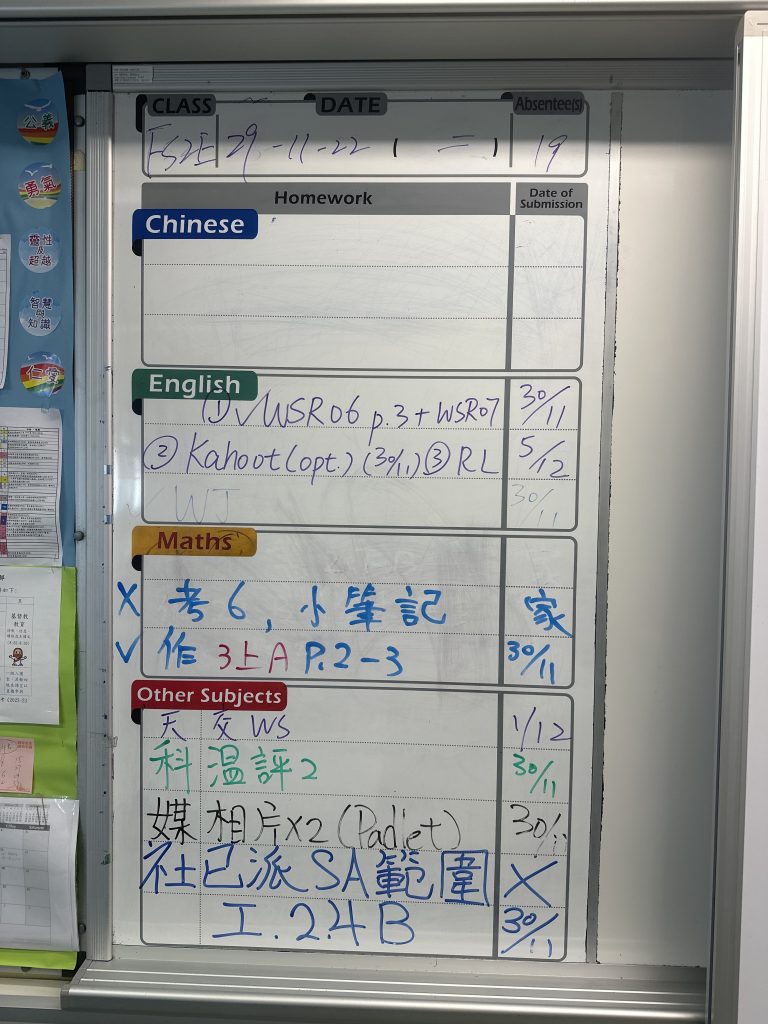 CLASS DATE Absentee(s)
29-11-22 19
Homework Date of Submission
Chinese
English
① ✓WSR06 p.3 + WSR07 30/11
② Kahoot (opt.) (30/11) ③ RL 5/12
WJ 30/11
Maths
X 考6, 小筆記 家
✓ 作 3上A P.2-3 30/11
Other Subjects
天 交 WS 1/12
科 溫評2 30/11
媒 相片X2 (Padlet) 30/11
社 已派SA範圍 X
工. 2.4 B 30/11
公義
勇氣
靈性及超越
智慧與知識
仁愛
基督教
教育